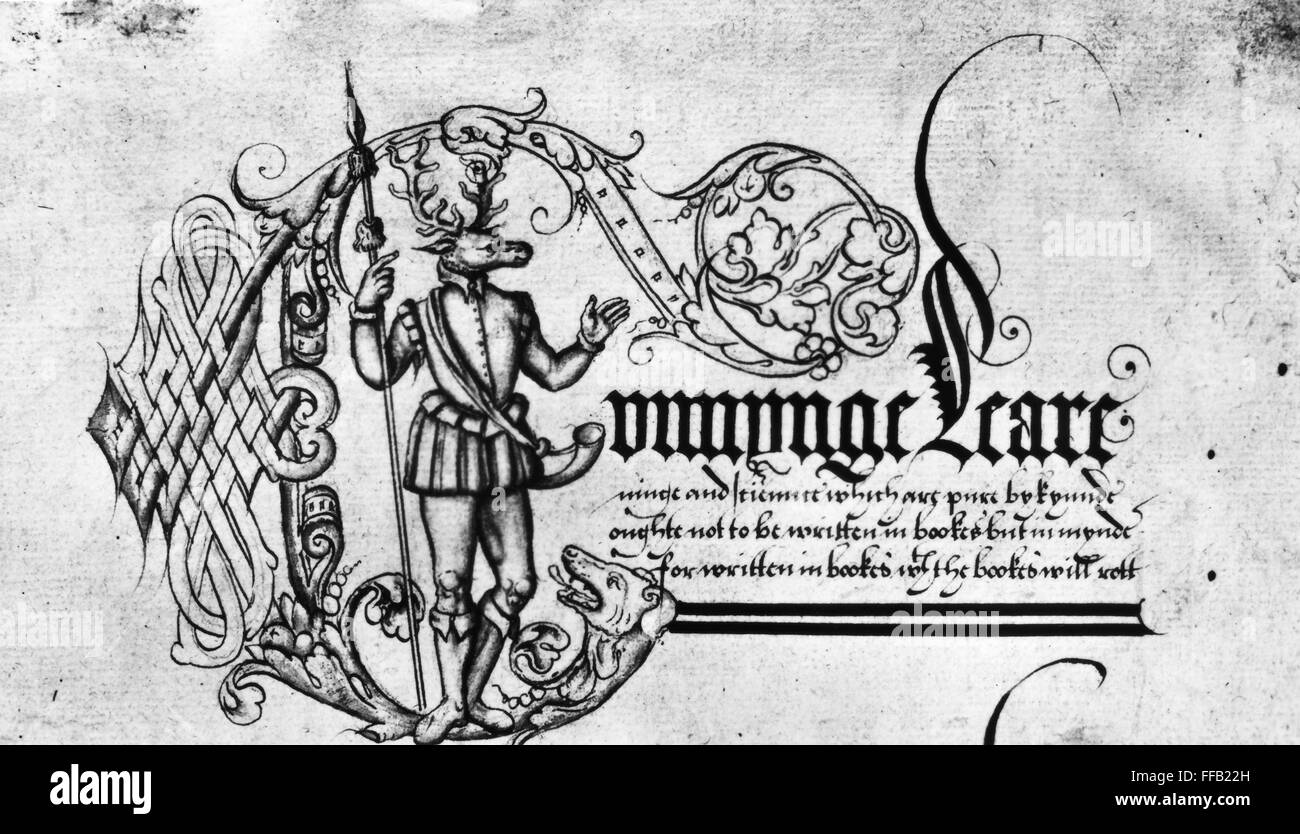 Counnynge Leare
ninge and sciennce which are pure by kynnde
oughte not to be written in bookes but in mynde
for written in bookes wth the bookes will rott
alamy
alamy
Image ID: FFB22H
www.alamy.com